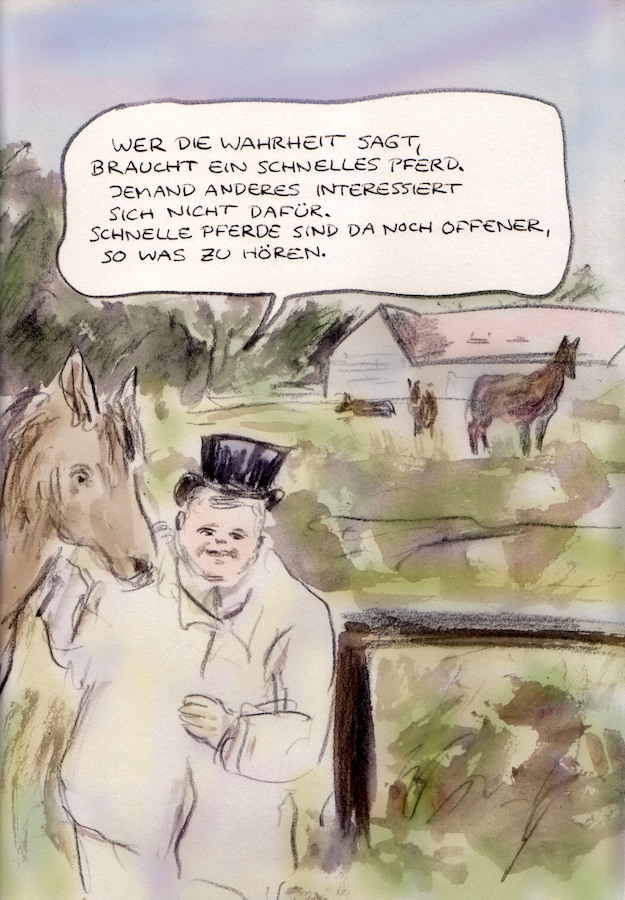 WER DIE WAHRHEIT SAGT,
BRAUCHT EIN SCHNELLES PFERD.
JEMAND ANDERES INTERESSIERT
SICH NICHT DAFÜR.
SCHNELLE PFERDE SIND DA NOCH OFFENER,
SO WAS ZU HÖREN.